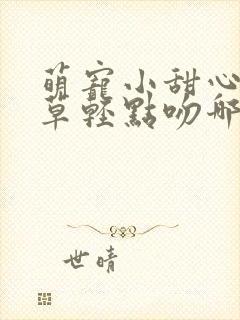 萌寵小甜心
草輕點吻那
世晴